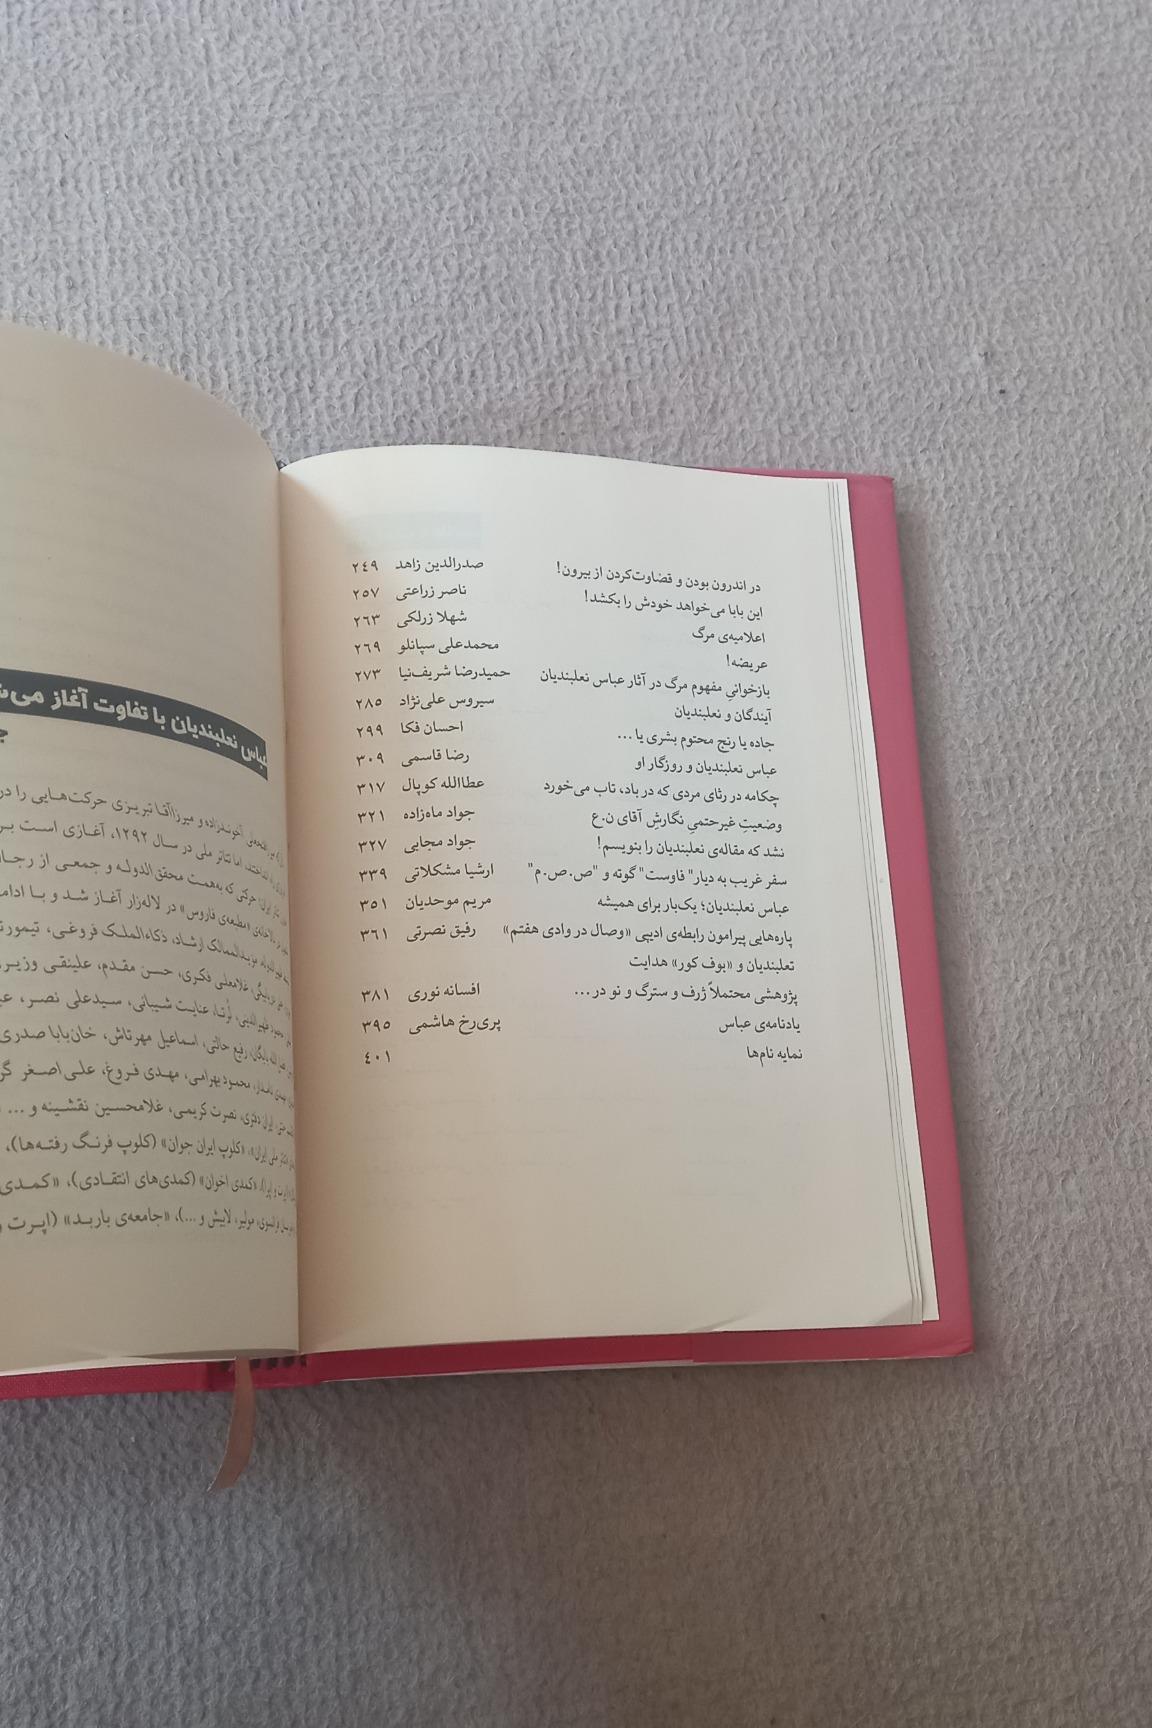 در اندرون بودن و قضاوت‌کردن از بیرون! صدرالدین زاهد ۲۴۹
این بابا می‌خواهد خودش را بکشد! ناصر زراعتی ۲۵۷
اعلامیه‌ی مرگ شهلا زرلکی ۲۶۳
عریضه! محمدعلی سپانلو ۲۶۹
بازخوانی مفهوم مرگ در آثار عباس نعلبندیان حمیدرضا شریف‌نیا ۲۷۳
آیندگان و نعلبندیان سیروس علی‌نژاد ۲۸۵
جاده یا رنج محتوم بشری یا... احسان فکا ۲۹۹
عباس نعلبندیان و روزگار او رضا قاسمی ۳۰۹
چکامه در رثای مردی که در باد، تاب می‌خورد عطاالله کوپال ۳۱۷
وضعیتِ غیرحتمیِ نگارشِ آقای ن.ع جواد ماه‌زاده ۳۲۱
نشد که مقاله‌ی نعلبندیان را بنویسم! جواد مجابی ۳۲۷
سفر غریب به دیار" فاوست" گوته و "ص.ص.م" ارشیا مشکلاتی ۳۳۹
عباس نعلبندیان؛ یک‌بار برای همیشه مریم موحدیان ۳۵۱
پاره‌هایی پیرامون رابطه‌ی ادیپی «وصال در وادی هفتم» رفیق نصرتی ۳۶۱
نعلبندیان و «بوف کور» هدایت
پژوهشی محتملاً ژرف و سترگ و نو در... افسانه نوری ۳۸۱
یادنامه‌ی عباس پری‌رخ هاشمی ۳۹۵
نمایه نام‌ها ۴۰۱
عباس نعلبندیان با تفاوت آغاز
آخوندزاده و میرزاآقا تبریزی حرکت‌هایی را
اما تئاتر ملی در سال ۱۲۹۲، آغازی است
حرکتی که به‌همت محقق‌الدوله و جمعی از
«مطبعه‌ی فاروس» در لاله‌زار آغاز شد و با
مؤیدالممالک ارشاد، ذکاءالملک فروغی،
غلامعلی فکری، حسن مقدم، علینقی
لرتا، عنایت شیبانی، سیدعلی نصر،
رفیع حالتی، اسماعیل مهرتاش، خان‌بابا صدری
محمود بهرامی، مهدی فروغ، علی‌اصغر
نصرت کریمی، غلامحسین نقشینه و ...
«کلوپ ایران جوان» (کلوپ فرنگ رفته‌ها)،
«کمدی اخوان» (کمدی‌های انتقادی)،
مولیر، لابیش و ...)، «جامعه‌ی باربد» (اپرت